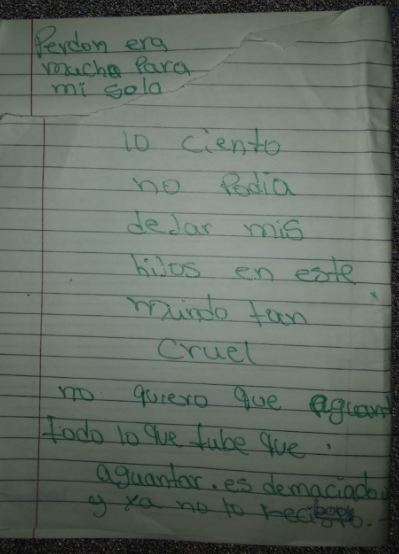 Perdon era
mucho Para
mi sola
lo ciento
no Podia
deJar mis
hiJos en este
mundo tan
cruel
no quiero que aguant
todo lo que tube que
aguantar. es demaciado
y ya no lo